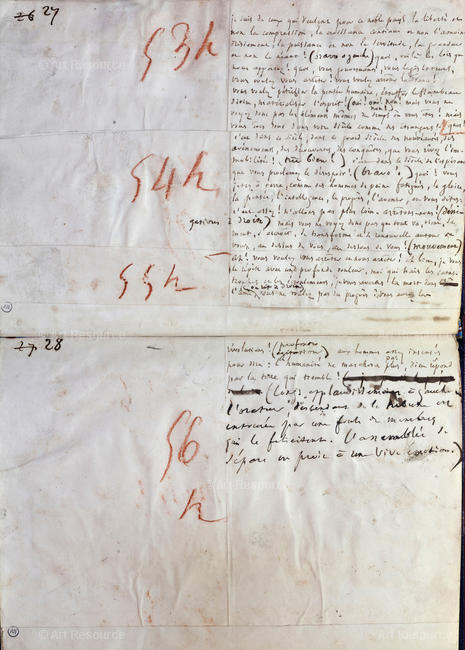 26 27
53 h
54 h
gasiorus
55 h
je suis de ceux qui veulent pour ce noble pays la liberté et
non la compression, la croissance continue et non l'amoin-
drissement, la puissance et non la servitude, la grandeur
et non le néant ! (bravo à gauche) quoi, voilà les lois que
vous nous apportez ! quoi, vous gouvernants, vous législateurs,
vous voulez vous arrêter ! vous voulez arrêter la France !
vous voulez pétrifier la pensée humaine, étouffer le flambeau
divin, matérialiser l'esprit ! (oui ! oui ! non ! non !) mais vous ne
voyez donc pas les éléments mêmes du temps où vous êtes ! mais
vous êtes donc dans votre siècle comme des étrangers ! quoi !
c'est dans ce siècle, dans ce grand siècle des nouveautés, des
avènements, des découvertes, des conquêtes, que vous rêvez l'im-
mobilité ! (très bien !) c'est dans le siècle de l'espérance
que vous proclamez le désespoir ! (bravo !) quoi ! vous
jetez à terre, comme des hommes de peine fatigués, la gloire,
la pensée, l'intelligence, le progrès, l'avenir, et vous dites :
c'est assez ! n'allons pas plus loin, arrêtons-nous ! (Déné
à droite) mais vous ne voyez donc pas que tout va, vient, se
meut, s'accroît, se transforme et se renouvelle autour de
vous, au dessus de vous, au dessous de vous ! (mouvement)
Ah ! vous voulez vous arrêter et nous arrêter ! eh bien, je vous
le répète avec une profonde douleur, moi qui hais les catas-
trophes et les écroulements, je vous avertis la mort dans
l'âme, (on rit à droite) vous ne voulez pas du progrès ? vous aurez les
27 28
56
h
révolutions ! (profonde sensation) aux hommes assez insensés
pour dire : l'humanité ne marchera pas plus, Dieu répond
par la terre qui tremble !
(Longs applaudissements à gauche.
L'orateur, descendant de la tribune, est
entouré par une foule de membres
qui le félicitent. L'assemblée se
sépare en proie à une vive émotion.)
© Art Resource
© Art Resource
© Art Resource
© Art Resource
© Art Resource
© Art Resource